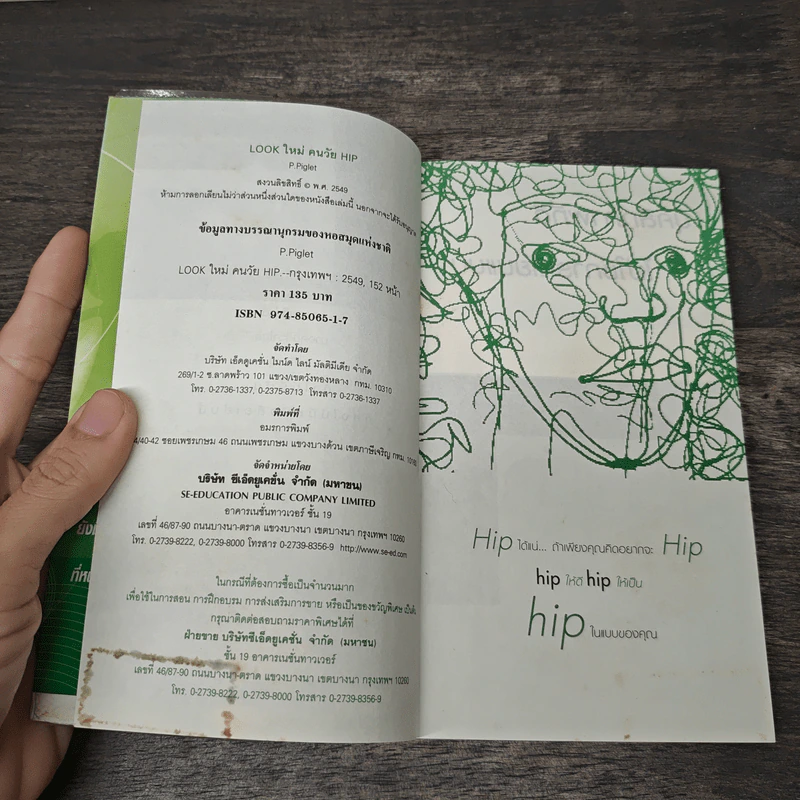 LOOK ใหม่ คนวัย HIP
P.Piglet
สงวนลิขสิทธิ์ © พ.ศ. 2549
ห้ามการลอกเลียนไม่ว่าส่วนหนึ่งส่วนใดของหนังสือเล่มนี้ นอกจากจะได้รับอนุญาต
ข้อมูลทางบรรณานุกรมของหอสมุดแห่งชาติ
P.Piglet
LOOK ใหม่ คนวัย HIP.--กรุงเทพฯ : 2549, 152 หน้า
ราคา 135 บาท
ISBN 974-85065-1-7
จัดทำโดย
บริษัท เอ็ดดูเคชั่น ไมน์ด ไลน์ มัลติมีเดีย จำกัด
269/1-2 ซ.ลาดพร้าว 101 แขวง/เขตวังทองหลาง กทม. 10310
โทร. 0-2736-1337, 0-2375-8713 โทรสาร 0-2736-1337
พิมพ์ที่
อมรการพิมพ์
4/40-42 ซอยเพชรเกษม 46 ถนนเพชรเกษม แขวงบางด้วน เขตภาษีเจริญ กทม. 10160
จัดจำหน่ายโดย
บริษัท ซีเอ็ดยูเคชั่น จำกัด (มหาชน)
SE-EDUCATION PUBLIC COMPANY LIMITED
อาคารเนชั่นทาวเวอร์ ชั้น 19
เลขที่ 46/87-90 ถนนบางนา-ตราด แขวงบางนา เขตบางนา กรุงเทพฯ 10260
โทร. 0-2739-8222, 0-2739-8000 โทรสาร 0-2739-8356-9 http://www.se-ed.com
ในกรณีที่ต้องการซื้อเป็นจำนวนมาก
เพื่อใช้ในการสอน การฝึกอบรม การส่งเสริมการขาย หรือเป็นของขวัญพิเศษ เป็นต้น
กรุณาติดต่อสอบถามราคาพิเศษได้ที่
ฝ่ายขาย บริษัทซีเอ็ดยูเคชั่น จำกัด (มหาชน)
ชั้น 19 อาคารเนชั่นทาวเวอร์
เลขที่ 46/87-90 ถนนบางนา-ตราด แขวงบางนา เขตบางนา กรุงเทพฯ 10260
โทร. 0-2739-8222, 0-2739-8000 โทรสาร 0-2739-8356-9
Hip ได้แน่... ถ้าเพียงคุณคิดอยากจะ Hip
hip ให้ดี hip ให้เป็น
hip ในแบบของคุณ